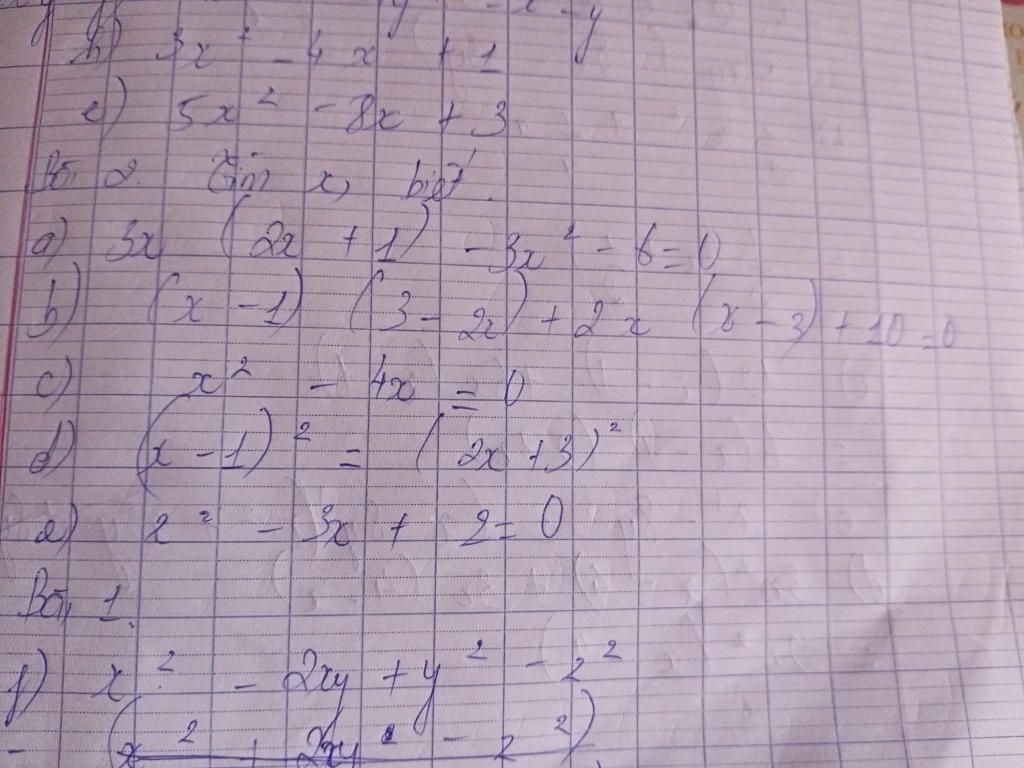 h) 3x² - 4x + 1
e) 5x² - 8x + 3
Bài 2. Tìm x, biết
a) 3x (2x + 1) - 3x² - 6 = 0
b) (x - 1) (3 - 2x) + 2x (x - 3) + 10 = 0
c) x² - 4x = 0
d) (x - 1)² = (2x + 3)²
e) x² - 3x + 2 = 0
Bài 1.
f) x² - 2xy + y² - z²